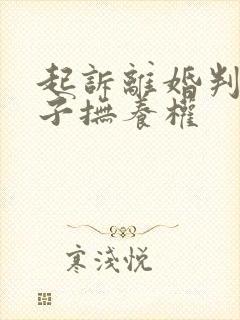 起訴離婚判
子撫養權
寒淺悅